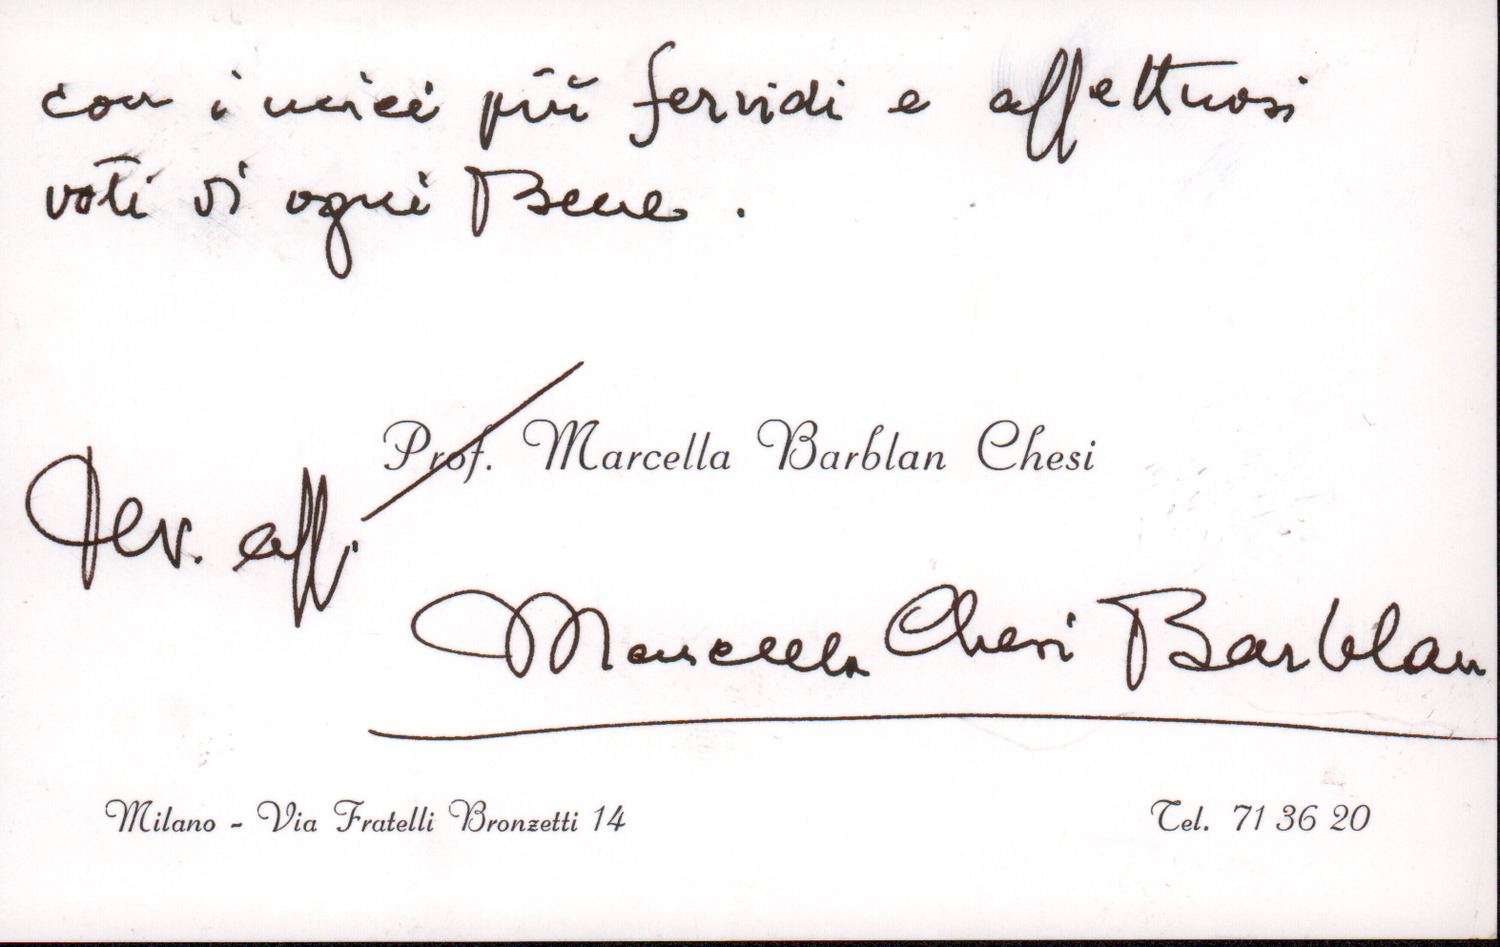 con i miei più fervidi e affettuosi
voti di ogni Bene.
Prof. Marcella Barblan Chesi
aff.
Marcella Chesi Barblan
Milano - Via Fratelli Bronzetti 14
Tel. 71 36 20